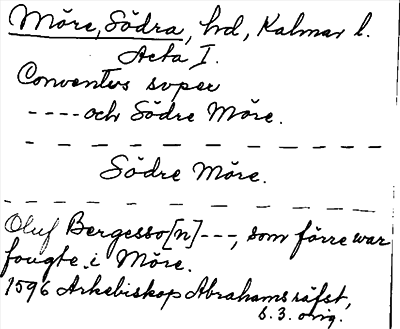 Möre, Södra, hd, Kalmar l.
Acta I.
Conventus super
---- och Södre Möre.
Södre Möre.
Oluf Bergesso[n] ---, som förre war
fougte i Möre.
1596 Arkebiskop Abrahams räfst,
s. 3. orig.